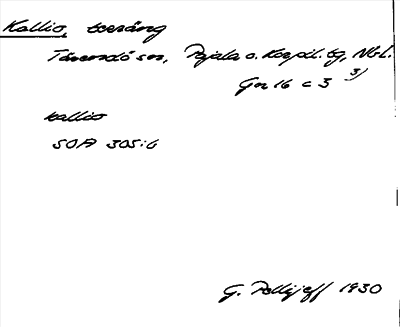 Kallio, terräng
Tärendö sn, Pajala o. Korpil. tg, Nbl.
Gr 16 c 3 3)
kallio
SOA 305:6
G. Pellijeff 1930